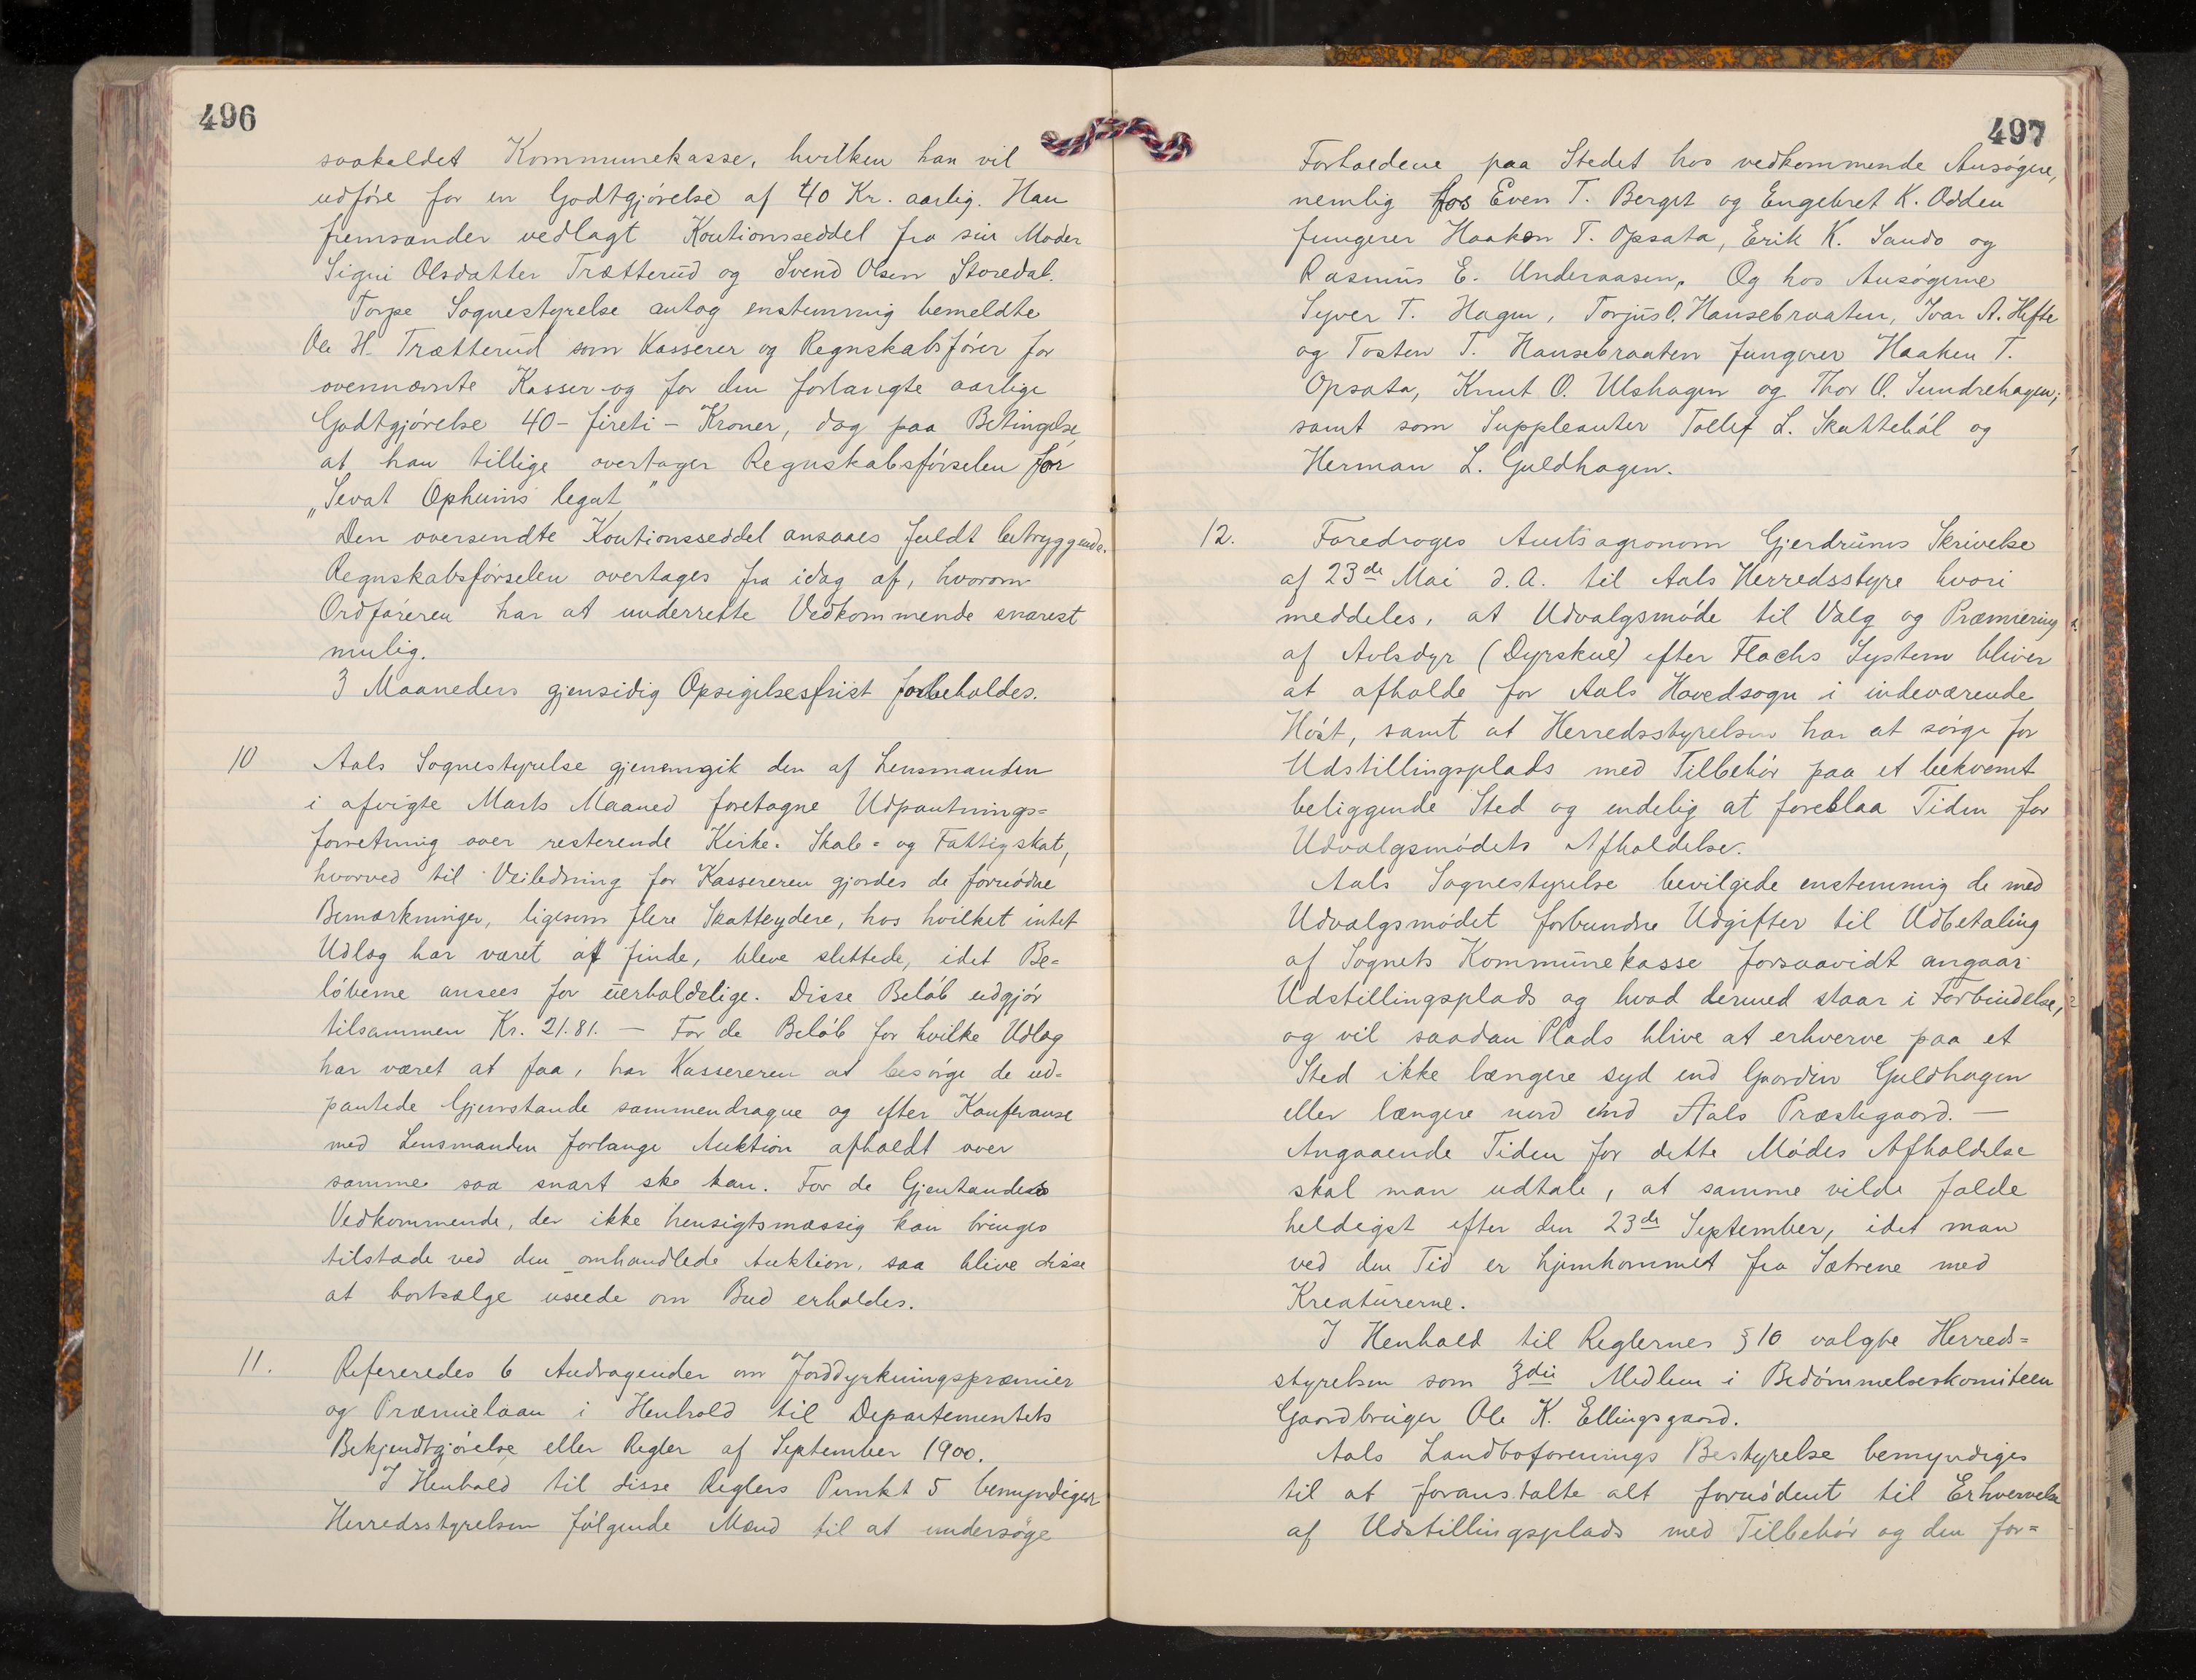 496
saakaldet Kommunekasse, hvilken han vil
udføre for en Godtgjørelse af 40 Kr. aarlig. Han
fremsænder vedlagt Kautionsseddel fra sin Moder
Signi Olsdatter Trætterud og Svend Olsen Storedal.
Torpe Sognestyrelse antog enstemmig bemeldte
Ole H. Trætterud som Kasserer og Regnskabsfører for
ovennævnte Kasser og for den forlangte aarlige
Godtgjørelse 40 - fireti - Kroner, dog paa Betingelse
at han tillige overtager Regnskabsførselen for
„Sevat Ophuims legat"
Den oversendte Kautionsseddel ansaaes fuldt betryggende.
Regnskabsførselen overtages fra idag af, hvorom
Ordføreren har at underrette Vedkommende snarest
mulig.
3 Maaneders gjensidig Opsigelsesfrist forbeholdes.
10 Aals Sognestyrelse gjennemgik den af Lensmanden
i afvigte Marts Maaned foretagne Udpantnings=
forretning over resterende Kirke- Skole= og Fattigskat,
hvorved til Veiledning for Kassereren gjordes de fornødne
Bemærkninger, ligesom flere Skatteydere, hos hvilket intet
Udlæg har været at finde, bleve slettede, idet Be=
løbene ansees for uerholdelige. Disse Beløb udgjør
tilsammen Kr. 21.81. — For de Beløb for hvilke Udlæg
har været at faa, har Kassereren at besørge de ud=
pantede Gjenstande sammendragne og efter Konferanse
med Lensmanden forlange Auktion afholdt over
samme saa snart ske kan. For de Gjentandes
Vedkommende, der ikke hensigtsmæssig kan bringes
tilstæde ved den omhandlede Auktion, saa blive disse
at bortsælge useede om Bud erholdes.
11. Refereredes 6 Andragender om Jorddyrkningspræmier
og Præmielaan i Henhold til Departementets
Bekjendtgjørelse eller Regler af September 1900.
I Henhold til disse Reglers Punkt 5 bemyndiger
Herredsstyrelsen følgende Mænd til at undersøge
497
Forholdene paa Stedet hos vedkommende Ansøgere,
nemlig hos Even T. Berget og Engebret K. Odden
fungerer Haakon T. Opsata, Erik K. Sando og
Rasmus E. Underaasen, Og hos Ansøgerne
Syver T. Hagen, Torjus O. Hansebraaten, Ivar A. Hefte
og Tosten T. Hansebraaten fungerer Haaken T.
Opsata, Knut O. Ulshagen og Thor O. Sundrehagen,
samt som Suppleanter Tollef L. Skattebøl og
Herman L. Guldhagen.
12. Foredroges Amtsagronom Gjerdrums Skrivelse
af 23de Mai d.A. til Aals Herredsstyre hvori
meddeles, at Udvalgsmøde til Valg og Præmiering
af Avlsdyr (Dyrskue) efter Flachs System bliver
at afholde for Aals Hovedsogn i indeværende
Høst, samt at Herredsstyrelsen har at sørge for
Udstillingsplads med Tilbehør paa et bekvemt
beliggende Sted og endelig at foreslaa Tiden for
Udvalgsmødets Afholdelse.
Aals Sognestyrelse bevilgede enstemmig de med
Udvalgsmødet forbundne Udgifter til Udbetaling
af Sognets Kommunekasse forsaavidt angaar
Udstillingsplads og hvad dermed staar i Forbindelse,
og vil saadan Plads blive at erhverve paa et
Sted ikke længere syd end Gaarden Guldhagen
eller længere nord end Aals Præstegaard. —
Angaaende Tiden for dette Mødes Afholdelse
skal man udtale, at samme vilde falde
heldigst efter den 23de September, idet man
ved den Tid er hjemkommet fra Sætrene med
Kreaturerne.
I Henhold til Reglernes § 10 valgte Herreds=
styrelsen som 3die Medlem i Bedømmelseskomiteen
Gaardbruger Ole K. Ellingsgaard.
Aals Landboforenings Bestyrelse bemyndiges
til at foranstalte alt fornødent til Erhvervelse
af Udstillingsplads med Tilbehør og den for=